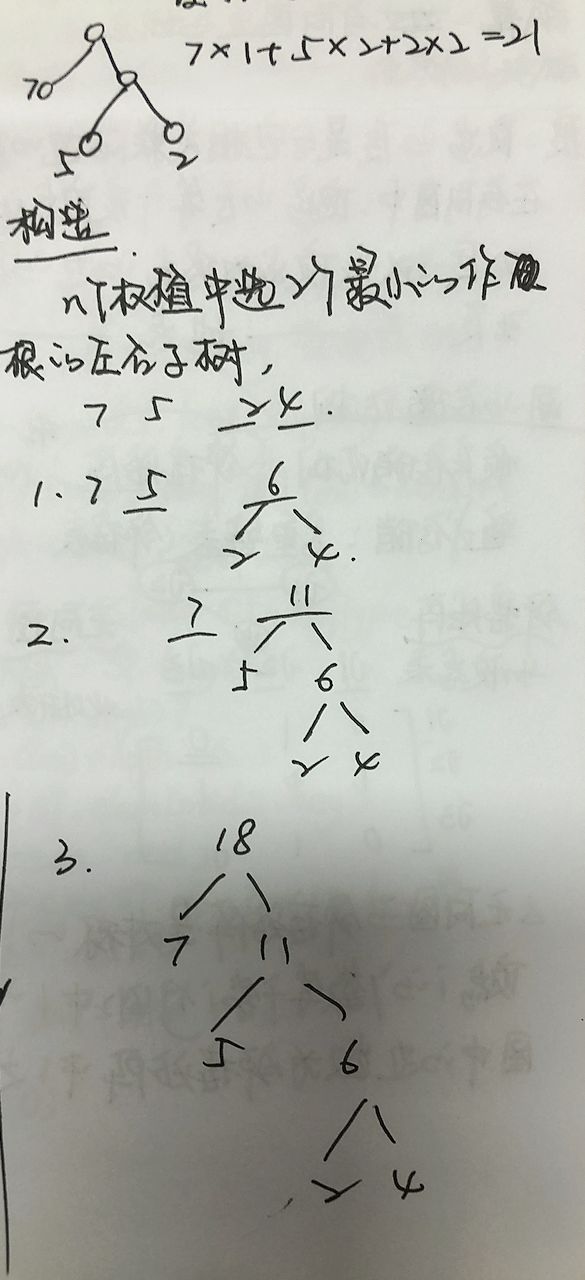 7×1+5×2+2×2=21
7
5 2
构造
n个权植中选2个最小的作
根的左右子树,
7 5 2 4.
1. 7 5 6
2 4.
2. 7 11
5 6
2 4
3. 18
7 11
5 6
2 4